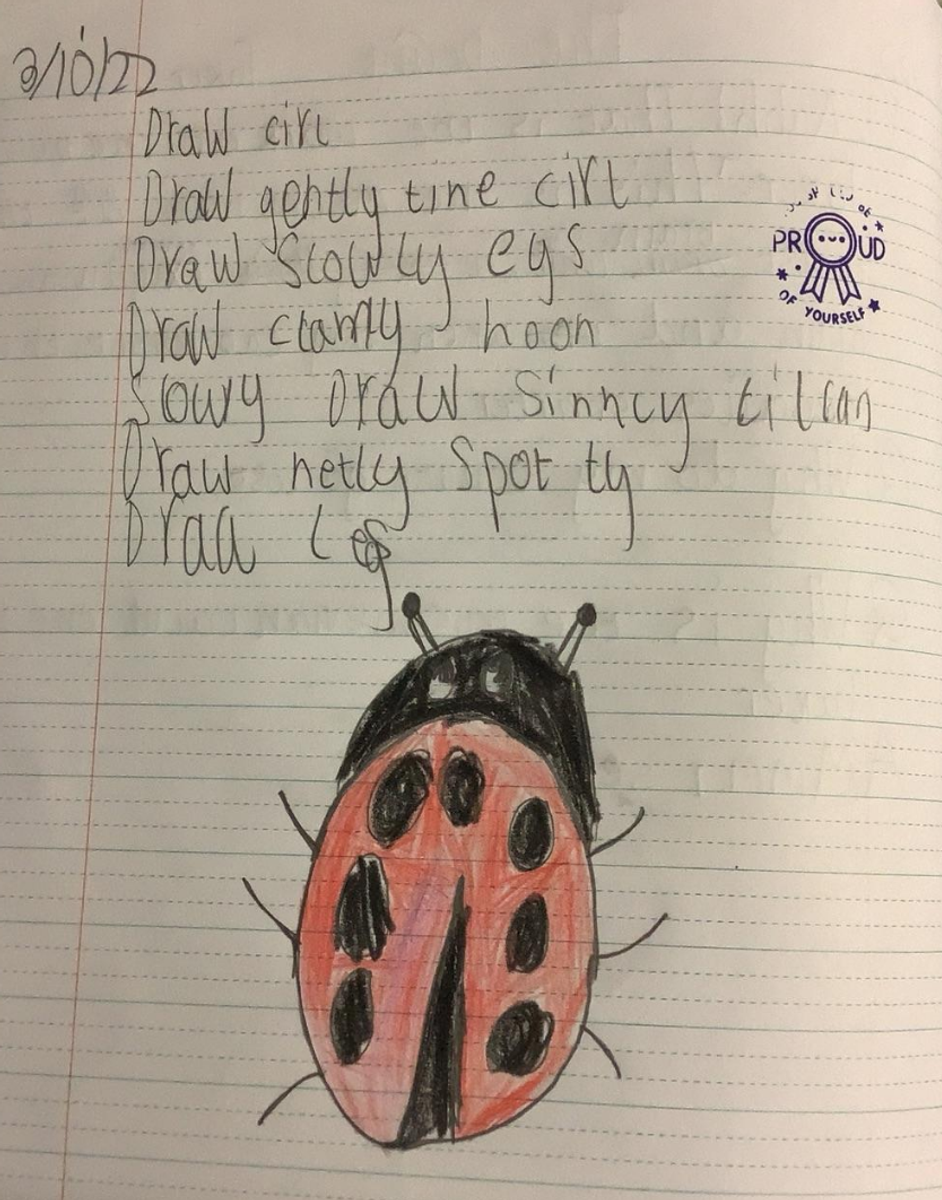 3/10/22
Draw circ
Draw gently tine cirt
Draw Slowly egs
Draw clamly hoon
Slowy Draw Sinncy
Draw netly Spot ty
Draa Legs
PROUD
OF YOURSELF